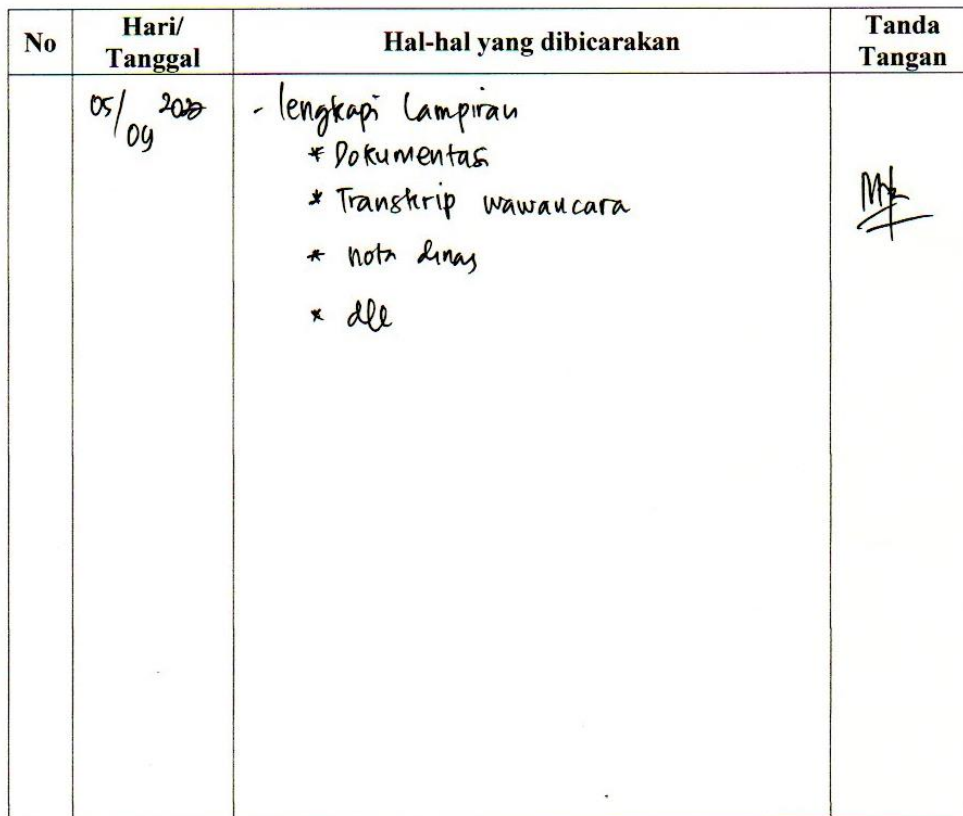 No
Hari/
Tanggal
Hal-hal yang dibicarakan
Tanda
Tangan
05/09
- lengkapi Lampiran
* Dokumentasi
* Transkrip wawancara
* nota dinas
* dll